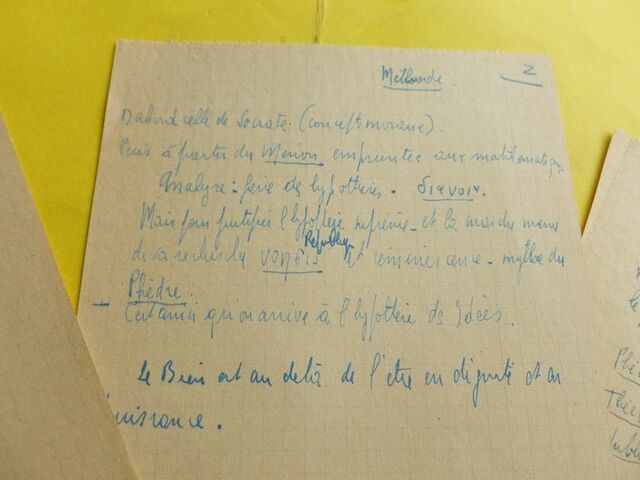 Méthode
2
D'abord celle de Socrate. (concepts moraux).
Puis à partir du Ménon empruntée aux mathématiques.
Analyse : faire des hypothèses. διανοια.
Mais pour justifier l'hypothèse suprême - et la marche même
République
de sa recherche νοησις et réminiscence - mythe du
Phèdre.
C'est ainsi qu'on arrive à l'hypothèse des Idées.
Le Bien est au delà de l'être en dignité et en
puissance.